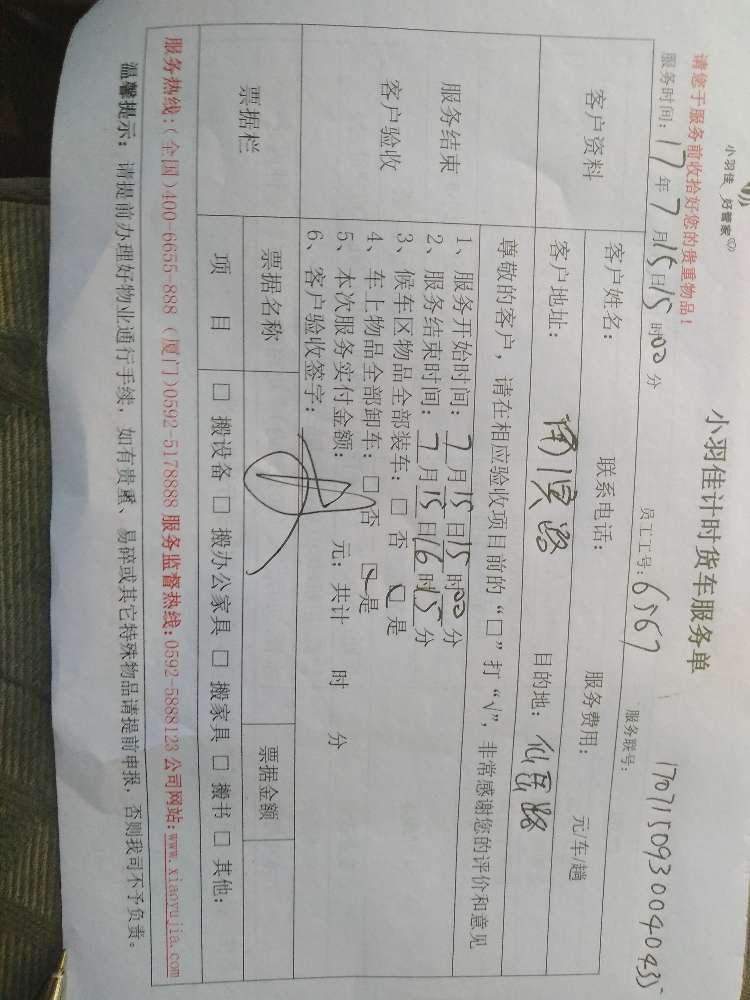 小羽佳 好管家
小羽佳计时货车服务单
170715093004043
请您于服务前收拾好您的贵重物品！
服务时间：17年7月15日15时00分 员工工号：6567 服务联号：
客户资料
客户姓名： 联系电话： 服务费用： 元/车/趟
客户地址： 路 目的地：仙岳路
服务结束
客户验收
尊敬的客户，请在相应验收项目前的“口”打“√”，非常感谢您的评价和意见
1、服务开始时间：7月15日15时00分
2、服务结束时间：7月15日16时15分
3、候车区物品全部装车：□ 否 □ 是
4、车上物品全部卸车：□ 否 □ 是
5、本次服务实付金额： 元；共计 时 分
6、客户验收签字：
票据栏
票据名称 票据金额
项 目 □ 搬设备 □ 搬办公家具 □ 搬家具 □ 搬书 □ 其他：
服务热线：(全国)400-6655-888 (厦门)0592-5178888 服务监督热线：0592-5888123 公司网站：www.xiaoyujia.com
温馨提示：请提前办理好物业通行手续，如有贵重、易碎或其它特殊物品请提前申报，否则我司不予负责。